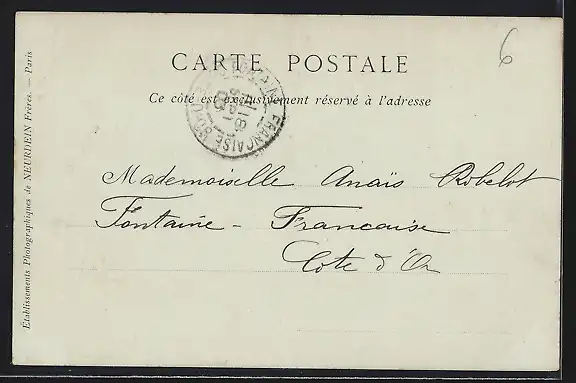 6
CARTE POSTALE
Ce côté est exclusivement réservé à l'adresse
FRANÇAISE
Mademoiselle Anaïs Robelot
Fontaine - Francaise
Cote d'Or
Établissements Photographiques de NEURDEIN Frères. — Paris